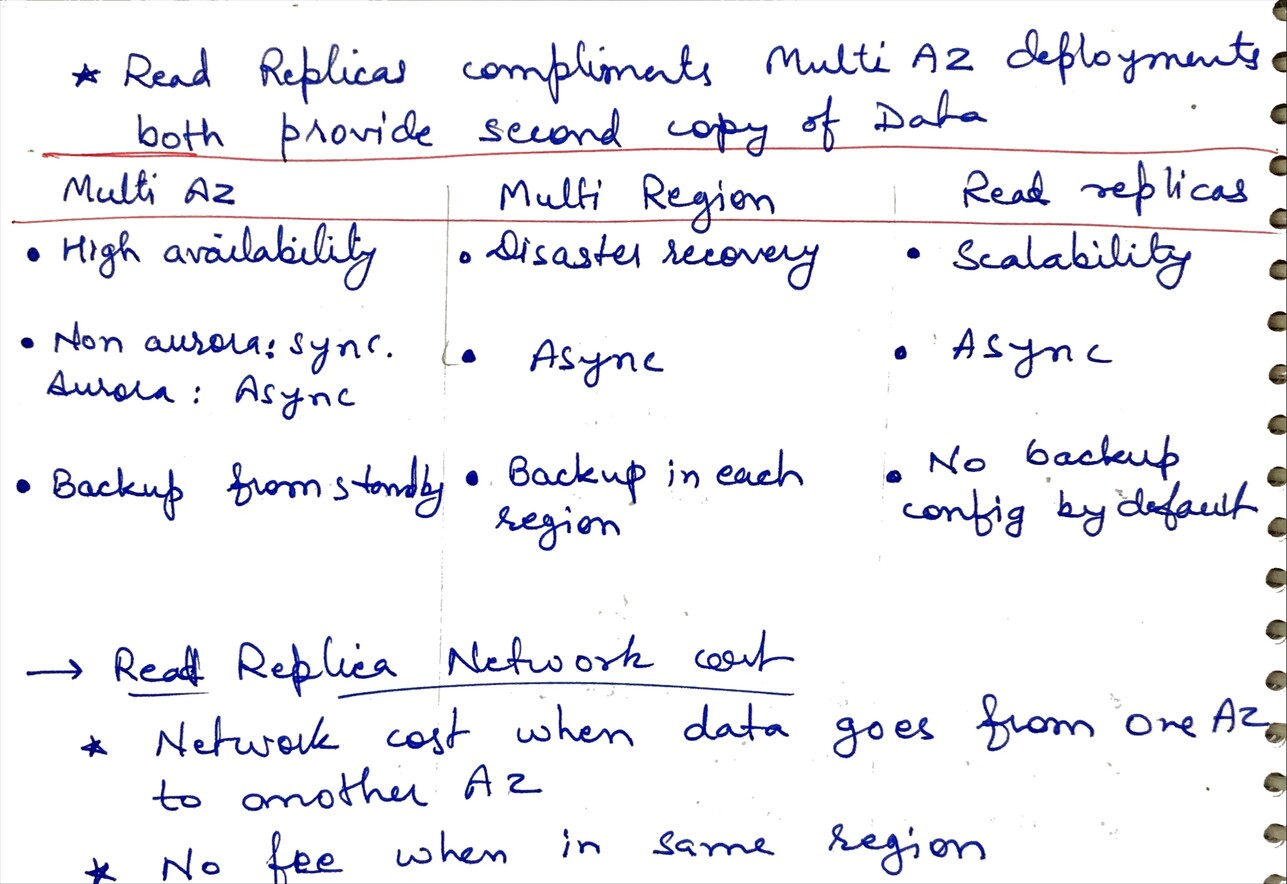 * Read Replicas compliments Multi AZ deployments
both provide second copy of Data
Multi AZ Multi Region Read replicas
• High availability • Disaster recovery • Scalability
• Non aurora: sync. • Async • Async
Aurora: Async
• Backup from standby • Backup in each • No backup
region config by default
→ Read Replica Network cost
* Network cost when data goes from one AZ
to another AZ
* No fee when in same region